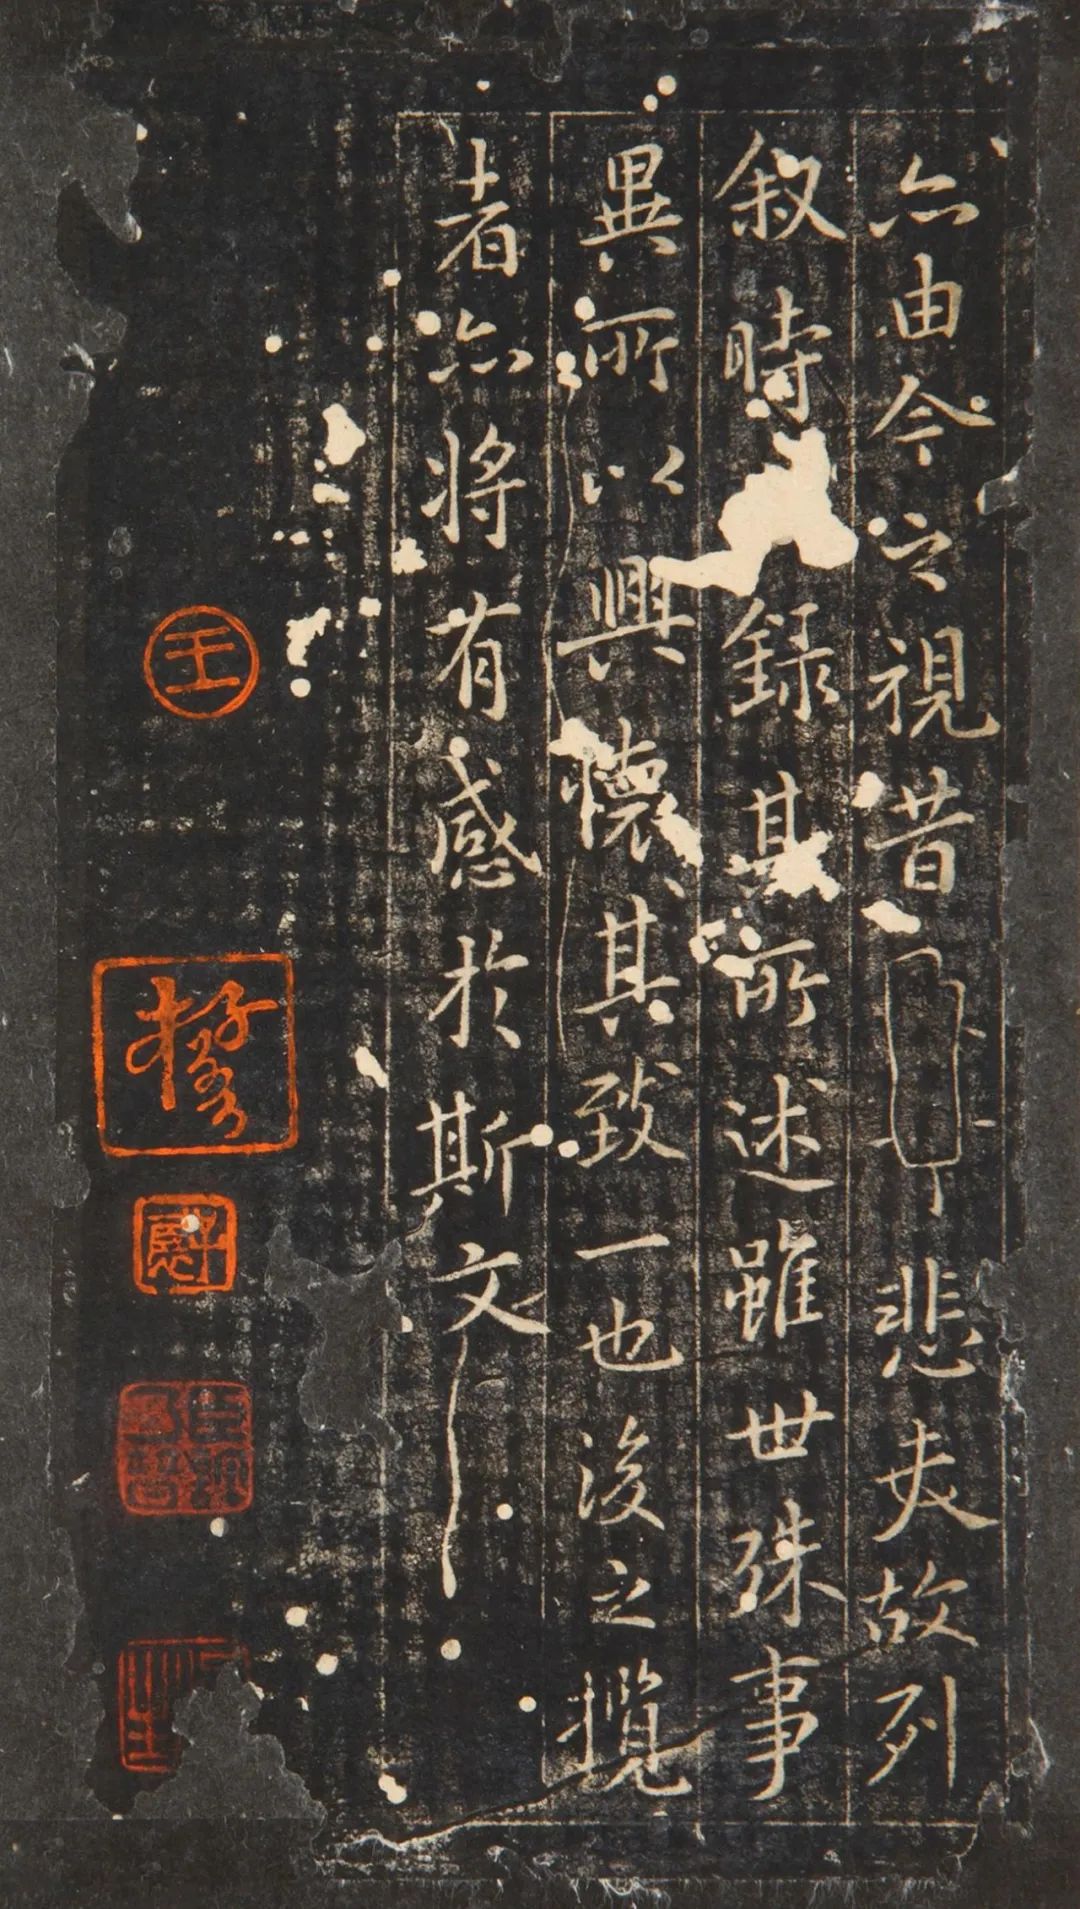 亦由今之視昔悲夫故列
叙時錄其所述雖世殊事
異所以興懷其致一也後之攬
者亦將有感於斯文